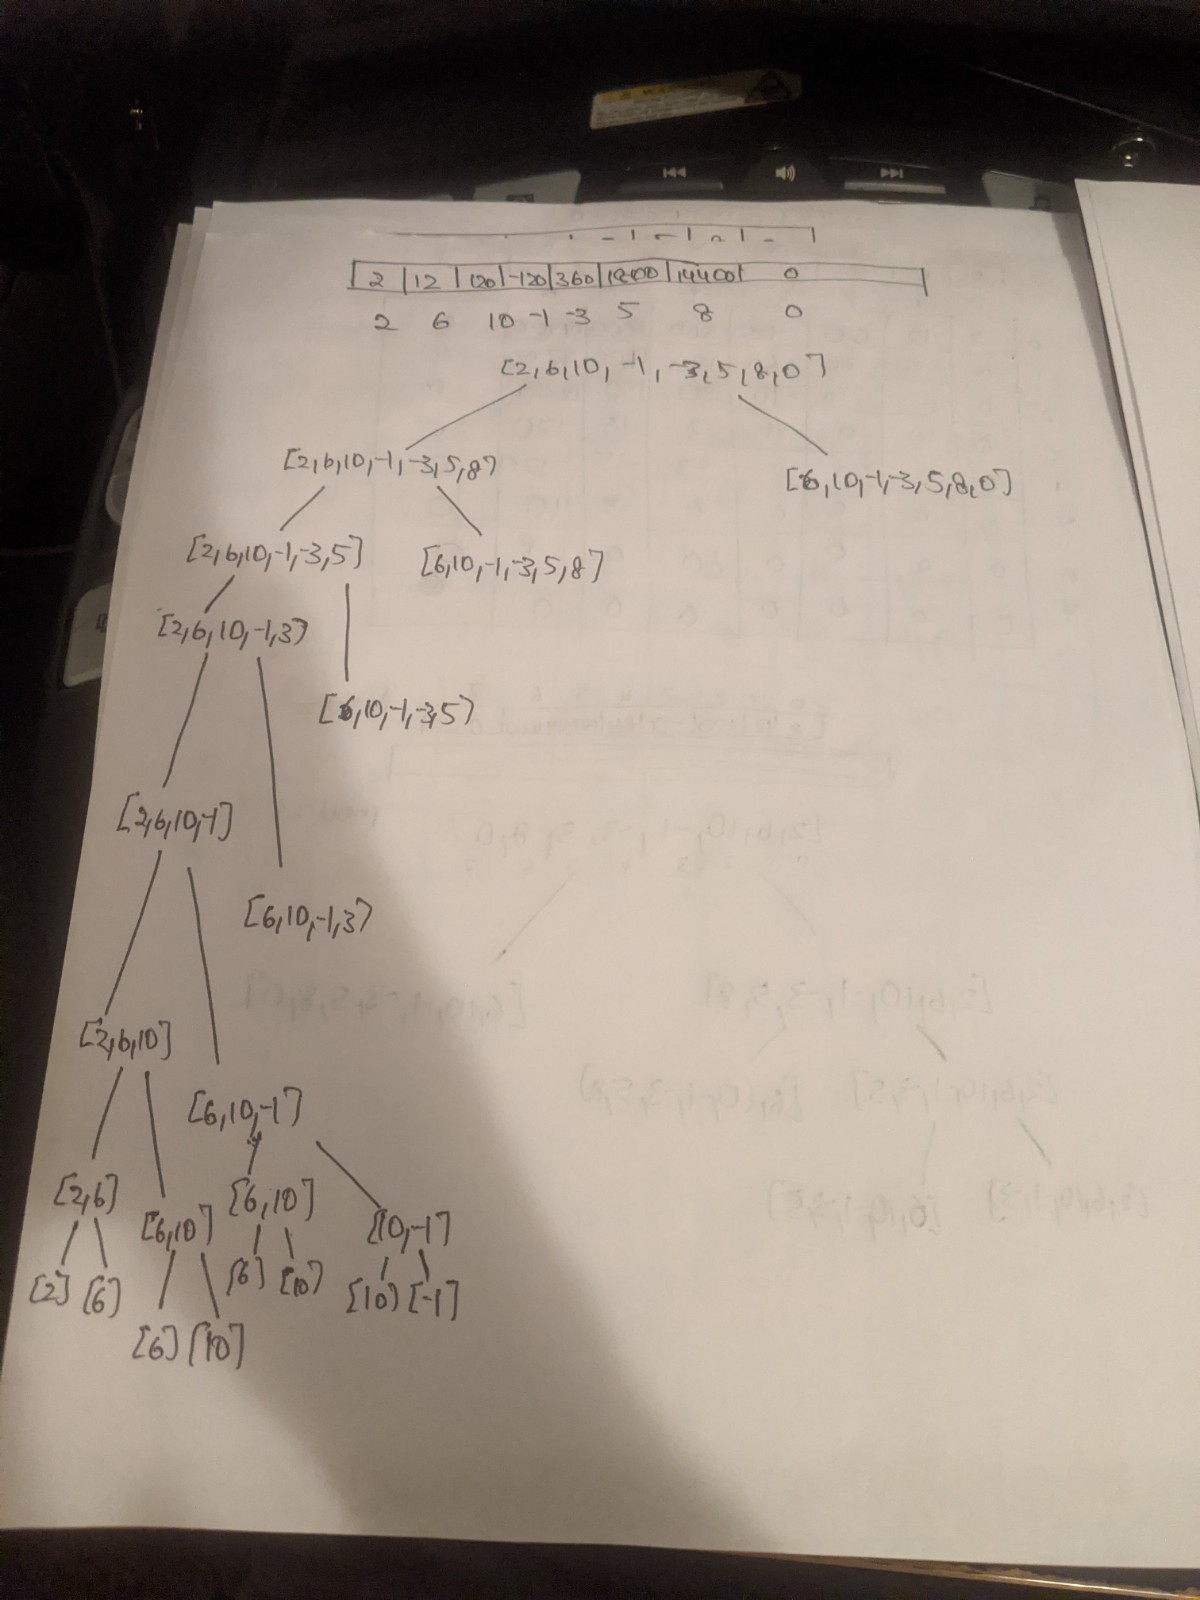 2 | 12 | 120 | -120 | 360 | 1800 | 14400 | 0
2 6 10 -1 -3 5 8 0
[2,6,10,-1,-3,5,8,0]
[2,6,10,-1,-3,5,8]
[6,10,-1,-3,5,8,0]
[2,6,10,-1,-3,5]
[6,10,-1,-3,5,8]
[2,6,10,-1,3]
[6,10,-1,-3,5]
[2,6,10,-1]
[6,10,-1,3]
[2,6,10]
[6,10,-1]
[2,6]
[6,10]
[6,10]
[10,-1]
[2] [6]
[6] [10]
[10] [-1]
[6] [10]